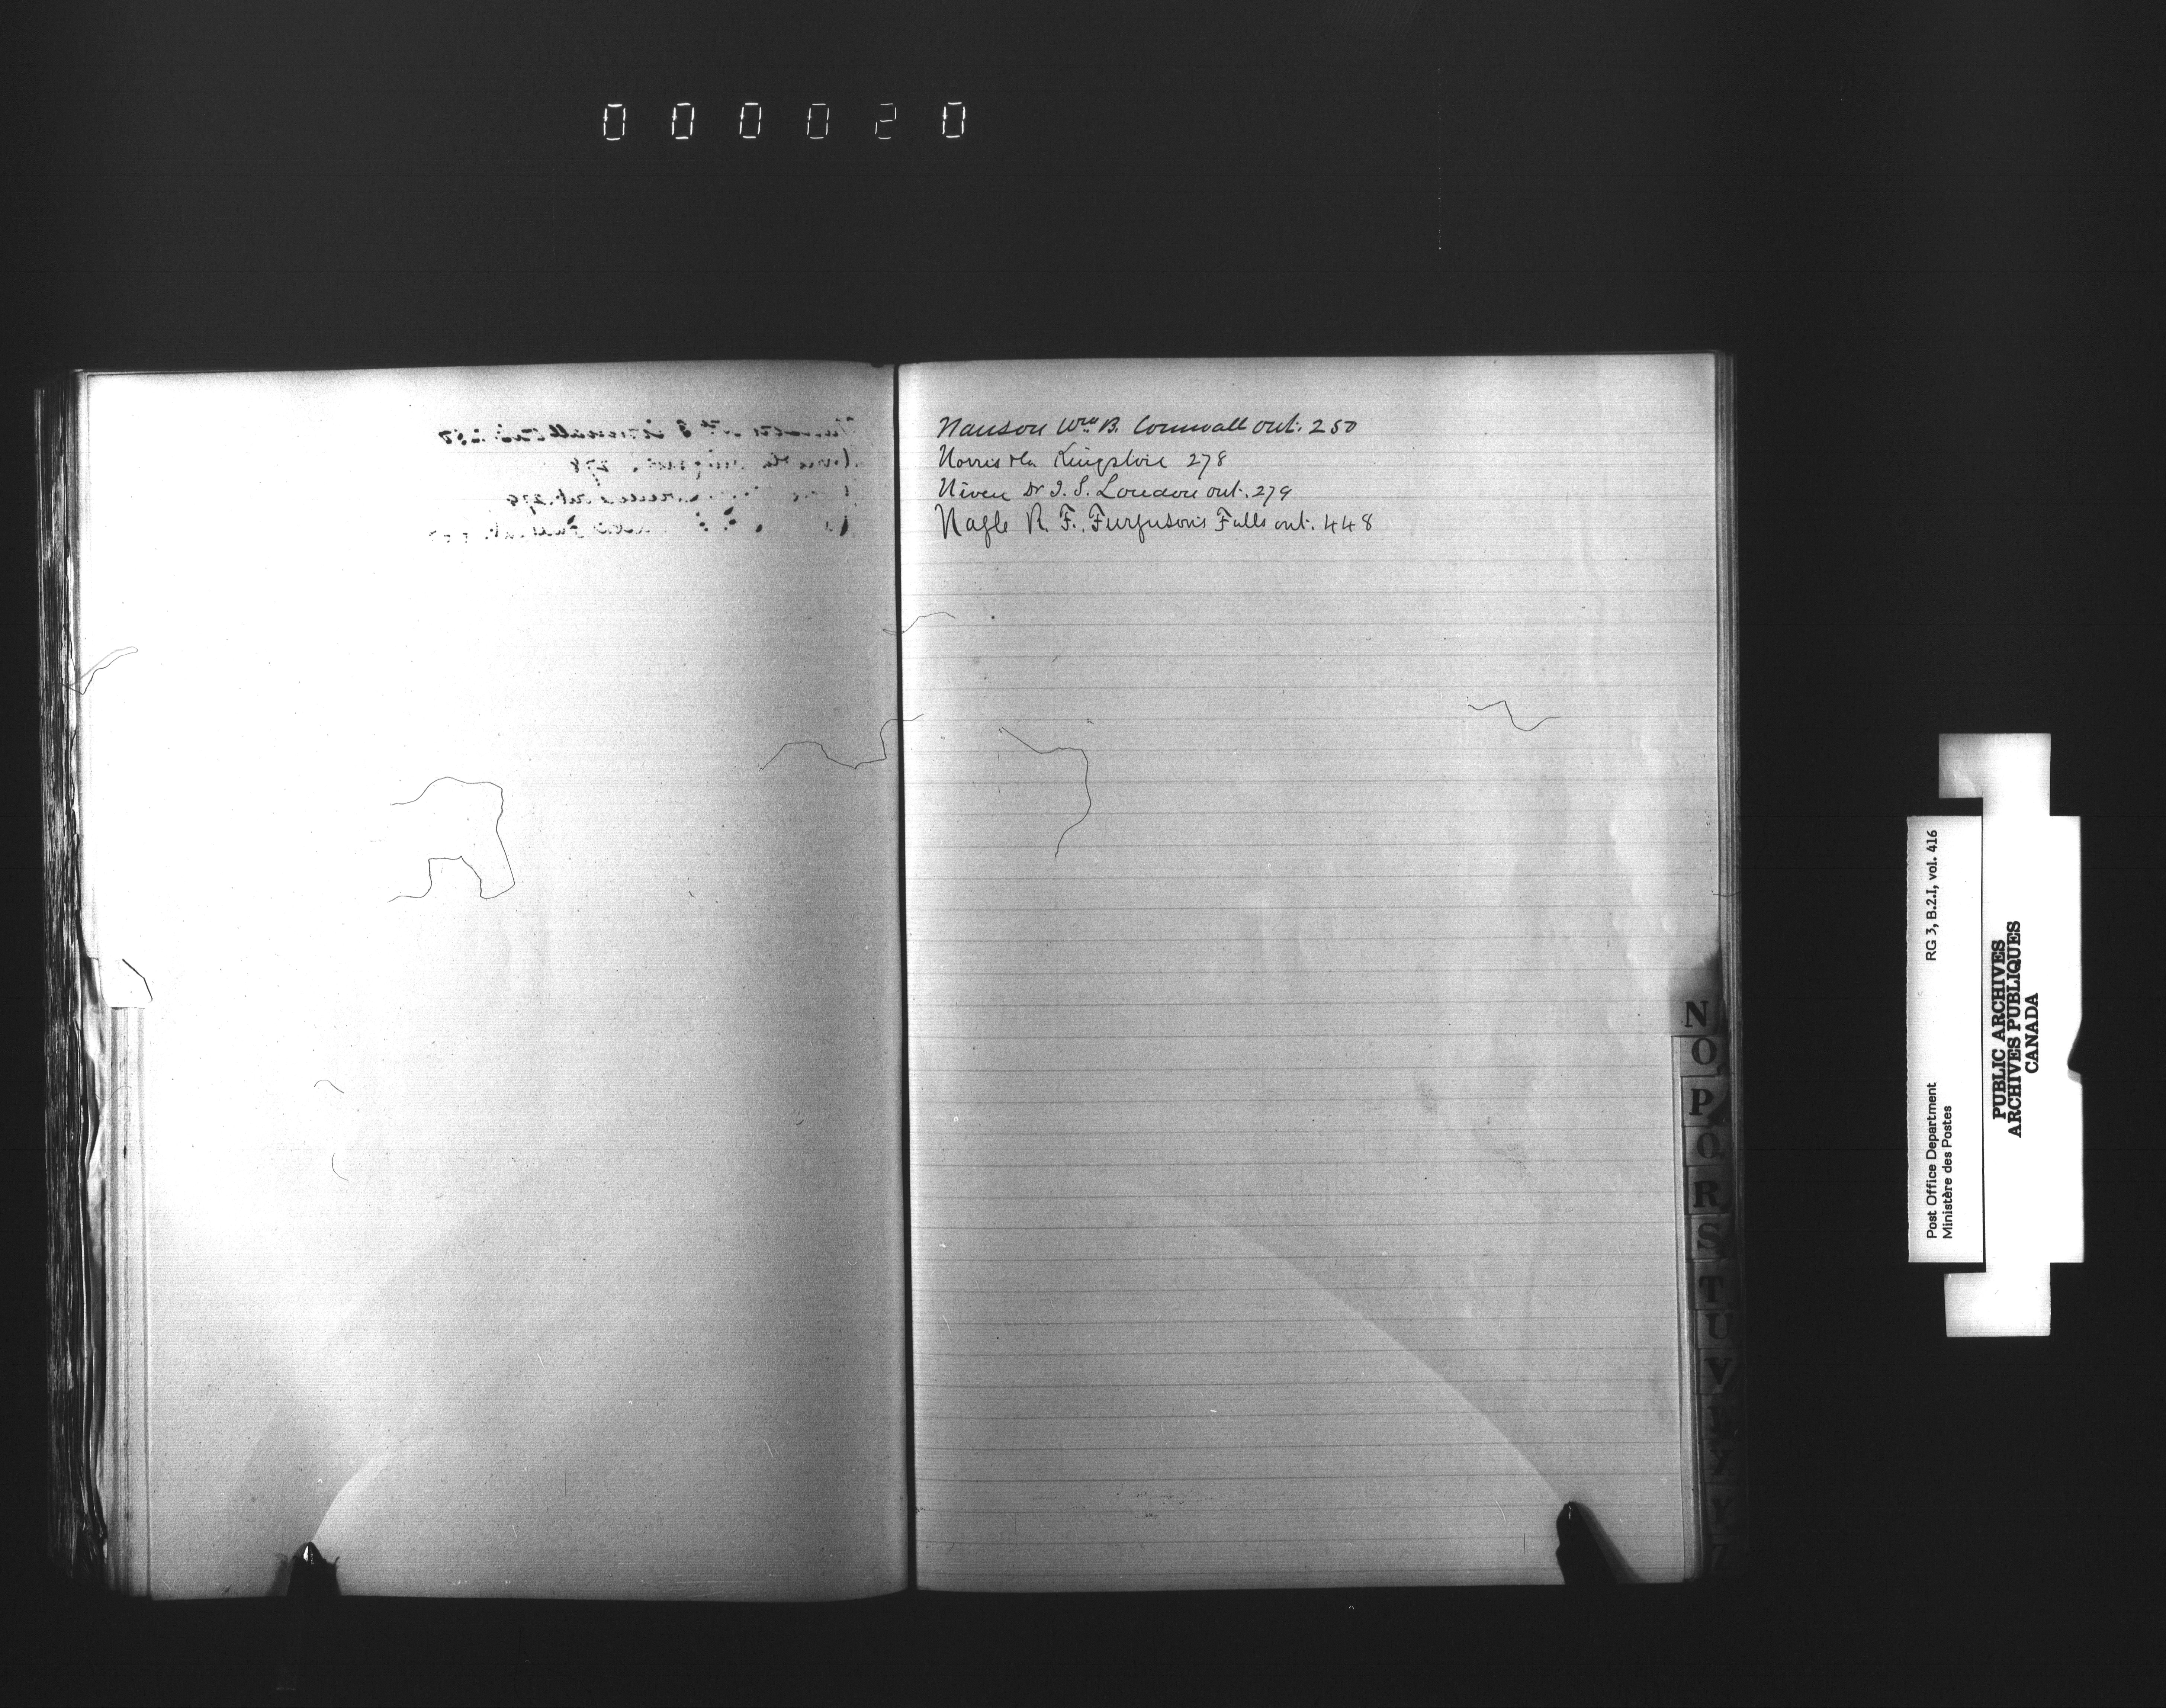 000020
Nanson Wm B. Cornwall ont. 250
Norris Kingston 278
Niven Dr J. S. London ont. 279
Nagle R. F. Furgusons Falls ont. 448
N
O
P
Q
R
S
T
U
V
Y
Post Office Department RG 3, B.2.I, vol. 416
Ministère des Postes
PUBLIC ARCHIVES
ARCHIVES PUBLIQUES
CANADA